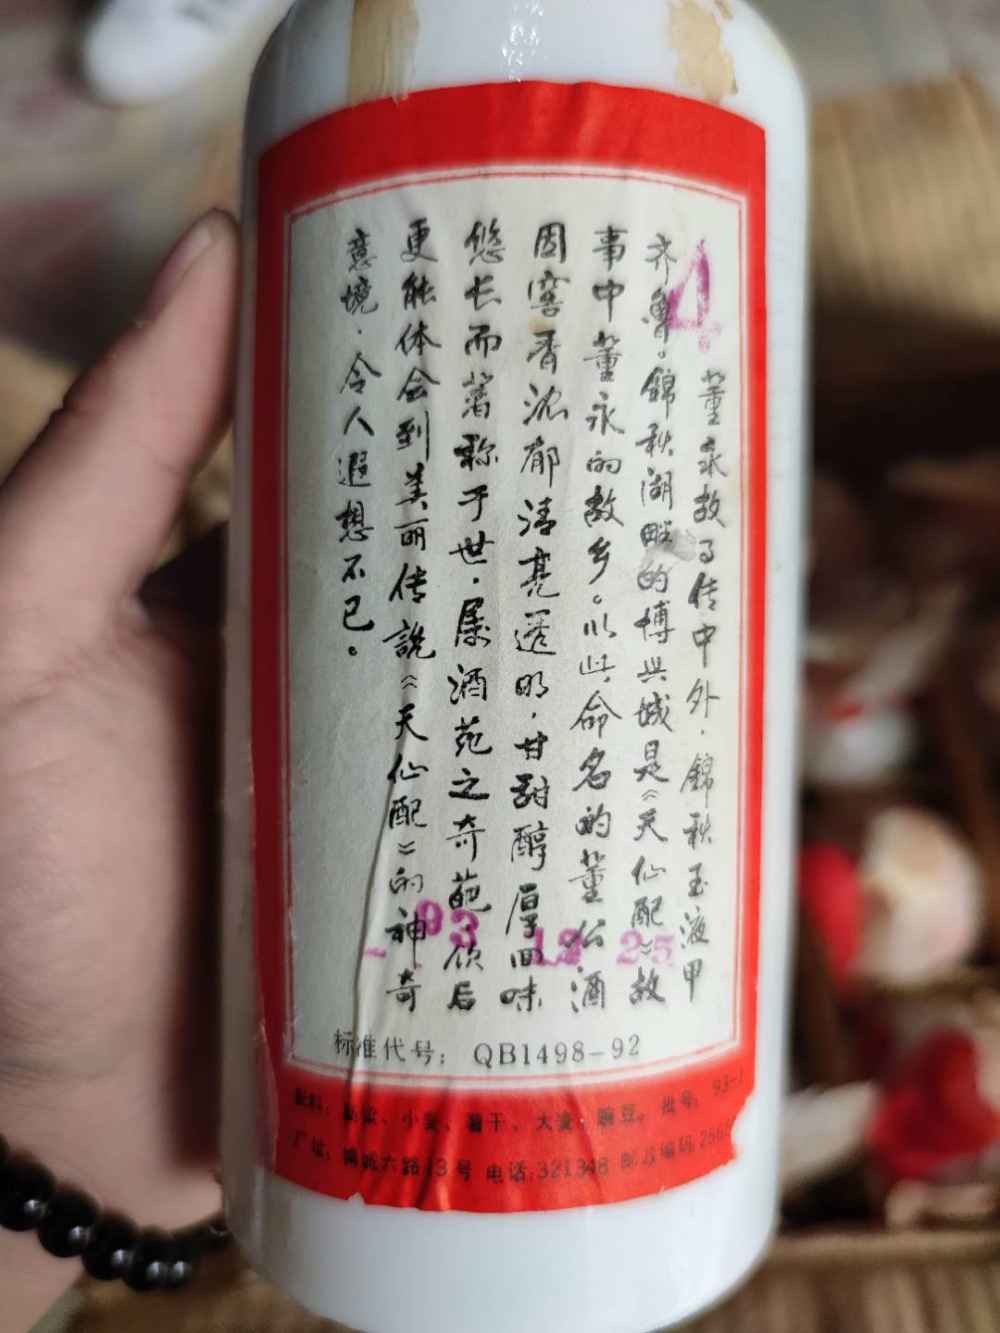 董永故事传中外.錦秋玉液甲
齐魯。錦秋湖畔的博兴城是《天仙配》故
事中董永的故乡。以此命名的董公酒
因窖香浓郁清亮透明.甘甜醇厚回味
悠长而著称于世.属酒苑之奇葩饮后
更能体会到美丽传説《天仙配》的神奇
意境.令人遐想不已。
4
93 12 25
标准代号: QB1498-92
小麦、薯干、大麦、豌豆。批号: 93-1
厂址: 城六路13号 电话:321348 邮政编码